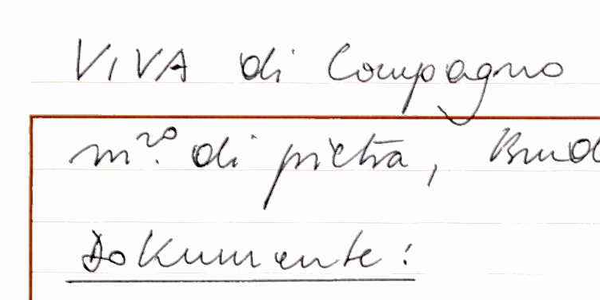 VIVA di Compagno
m.ro di pietra, Brud
Dokumente: